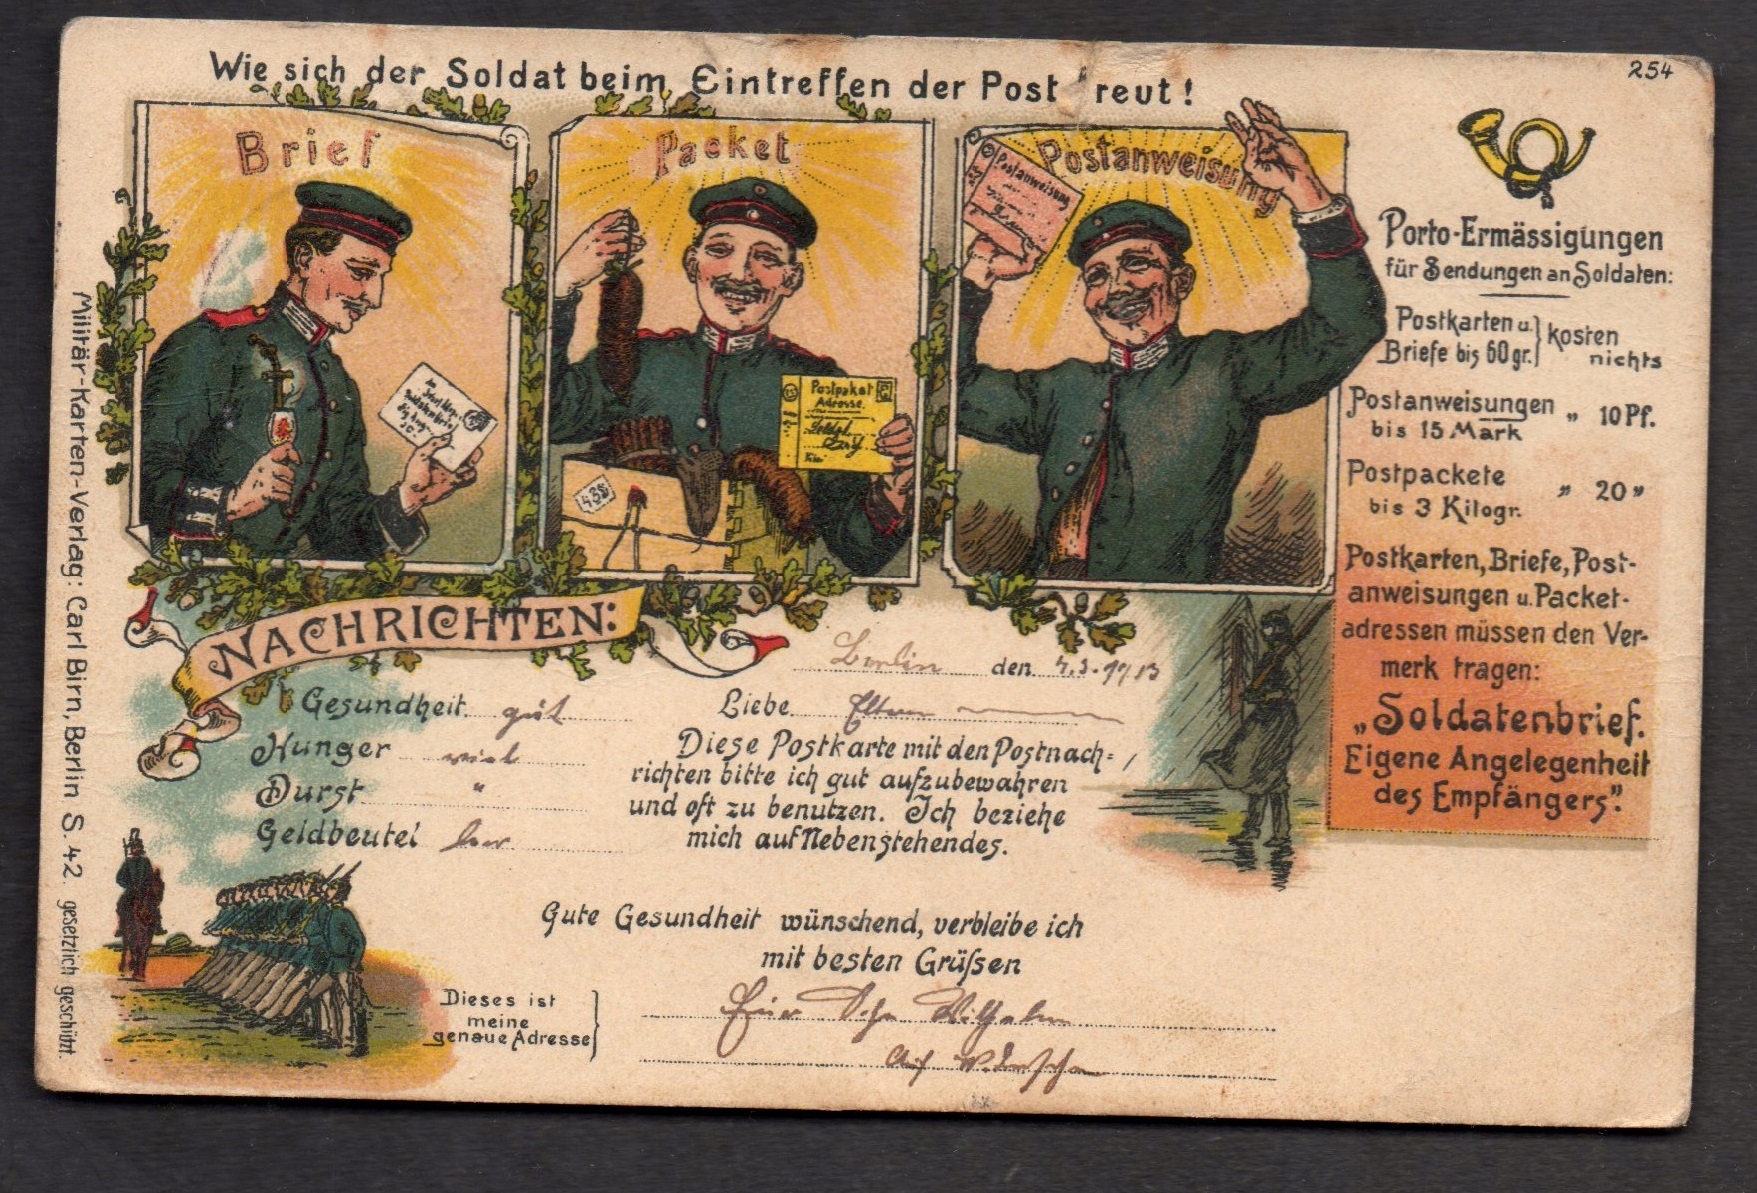 254
Wie sich der Soldat beim Eintreffen der Post freut!
Brief
Packet
Postanweisung
Postanweisung
Postpaket
Adresse.
438
Porto-Ermässigungen
für Sendungen an Soldaten:
Postkarten u.
Briefe bis 60 gr. } kosten nichts
Postanweisungen „ 10 Pf.
bis 15 Mark
Postpackete „ 20 „
bis 3 Kilogr.
Postkarten, Briefe, Post-
anweisungen u. Packet-
adressen müssen den Ver-
merk tragen:
„Soldatenbrief.
Eigene Angelegenheit
des Empfängers“.
NACHRICHTEN:
Gesundheit gut
Hunger viel
Durst "
Geldbeutel leer
Berlin den 4.3.1913
Liebe Eltern
Diese Postkarte mit den Postnach-
richten bitte ich gut aufzubewahren
und oft zu benutzen. Ich beziehe
mich auf Nebenstehendes.
Gute Gesundheit wünschend, verbleibe ich
mit besten Grüßen
Dieses ist
meine
genaue Adresse }
Euer Sohn Wilhelm
Auf Wiedersehn
Militär-Karten-Verlag: Carl Birn, Berlin S. 42. gesetzlich geschützt.